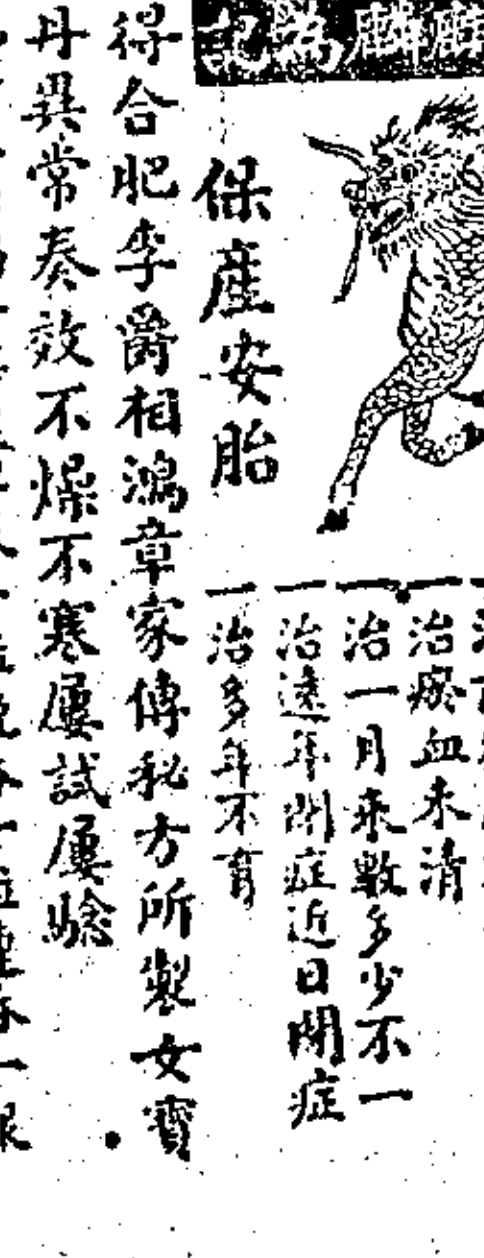 麟為記
一治瘀血未清
一治一月來數多少不一
一治遠年閉症近日閉症
一治多年不育
保產安胎
得合肥李爵相鴻章家傳秘方所製女寶
丹異常奏效不燥不寒屢試屢騐